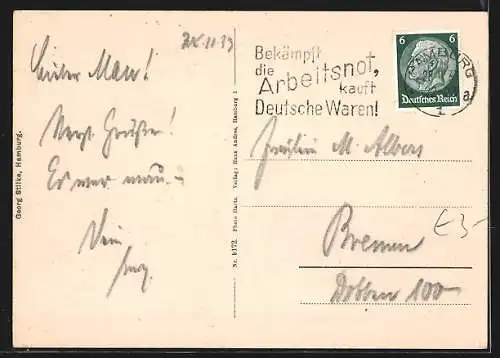 28.11.33
Bekämpft
die
Arbeitsnot,
kauft
Deutsche Waren!
6 6
Deutsches Reich
HAMBURG
a
1
Herzl. Grüße!
Es war
Dein
Fräulein M. Albers
Bremen
Dobben 100
E 3-
Georg Stilke, Hamburg.
Nr. 1172. Photo Hartz. Verlag: Hans Andres, Hamburg 1